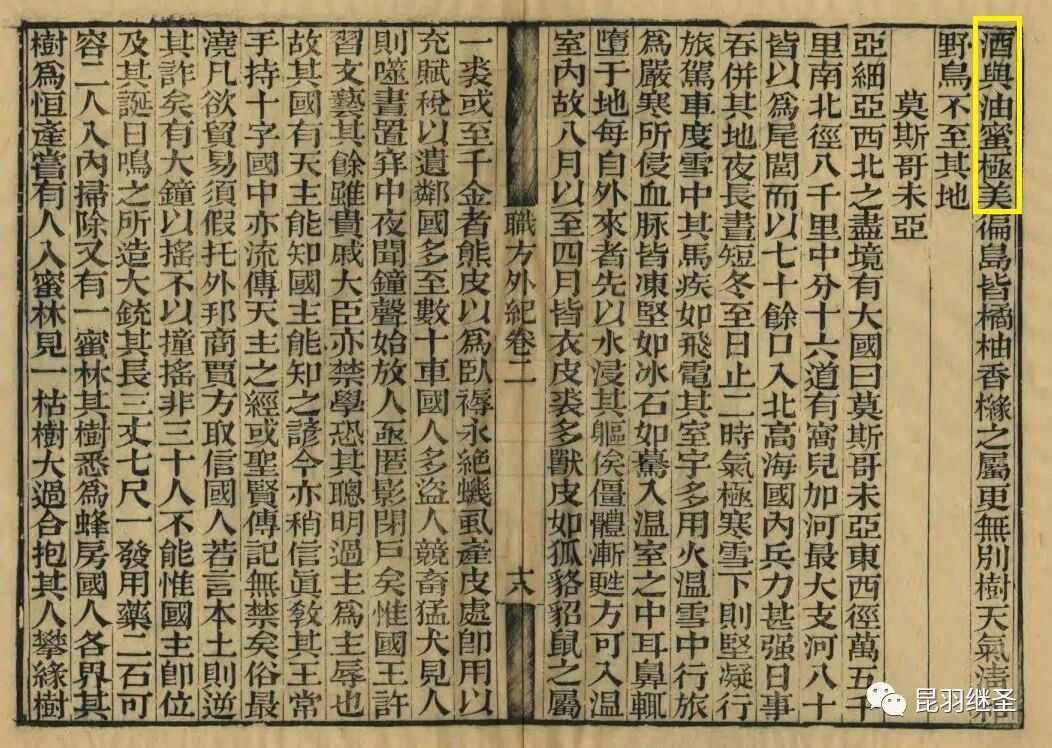 酒與油蜜極美偏島皆橘柚香櫞之屬更無別樹天氣清和
野鳥不至其地
莫斯哥未亞
亞細亞西北之盡境有大國曰莫斯哥未亞東西徑萬五千
里南北徑八千里中分十六道有窩兒加河最大支河八十
皆以爲尾閭而以七十餘口入北高海國內兵力甚强日事
吞併其地夜長晝短冬至日止二時氣極寒雪下則堅凝行
旅駕車度雪中其馬疾如飛電其室宇多用火溫雪中行旅
爲嚴寒所侵血脉皆凍堅如冰石如驀入溫室之中耳鼻輒
墮于地每自外來者先以水浸其軀俟僵體漸甦方可入溫
室內故八月以至四月皆衣皮裘多獸皮如狐貉貂鼠之屬
職方外紀卷二 十八
一裘或至千金者熊皮以爲臥褥永絶蟣虱產皮處卽用以
充賦稅以遺鄰國多至數十車國人多盜人競畜猛犬見人
則噬晝置穽中夜聞鐘聲始放人亟匿影閉戶矣惟國王許
習文藝其餘雖貴戚大臣亦禁學恐其聰明過主爲主辱也
故其國有天主能知國主能知之諺今亦稍信眞敎其王常
手持十字國中亦流傳天主之經或聖賢傳記無禁矣俗最
澆凡欲貿易須假托外邦商賈方取信國人若言本土則逆
其詐矣有大鐘以搖不以撞搖非三十人不能惟國主卽位
及其誕日鳴之所造大銃其長三丈七尺一發用藥二石可
容二人入內掃除又有一蜜林其樹悉爲蜂房國人各界其
樹爲恒產嘗有人入蜜林見一枯樹大過合抱其人攀緣樹
昆羽继圣